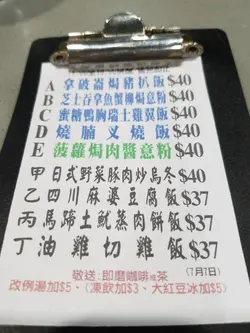 A 拿破崙焗豬扒飯 $40
B 芝士吞拿魚蟹柳焗意粉 $40
C 蜜糖鴨胸瑞士雞翼飯 $40
D 燒腩叉燒飯 $40
E 菠蘿焗肉醬意粉 $40
甲 日式野菜豚肉炒烏冬 $40
乙 四川麻婆豆腐飯 $37
丙 馬蹄土魷蒸肉餅飯 $37
丁 油雞切雞飯 $37
敬送:即磨咖啡或茶 (7月7日)
改例湯加$5、(凍飲加$3、大紅豆冰加$5)